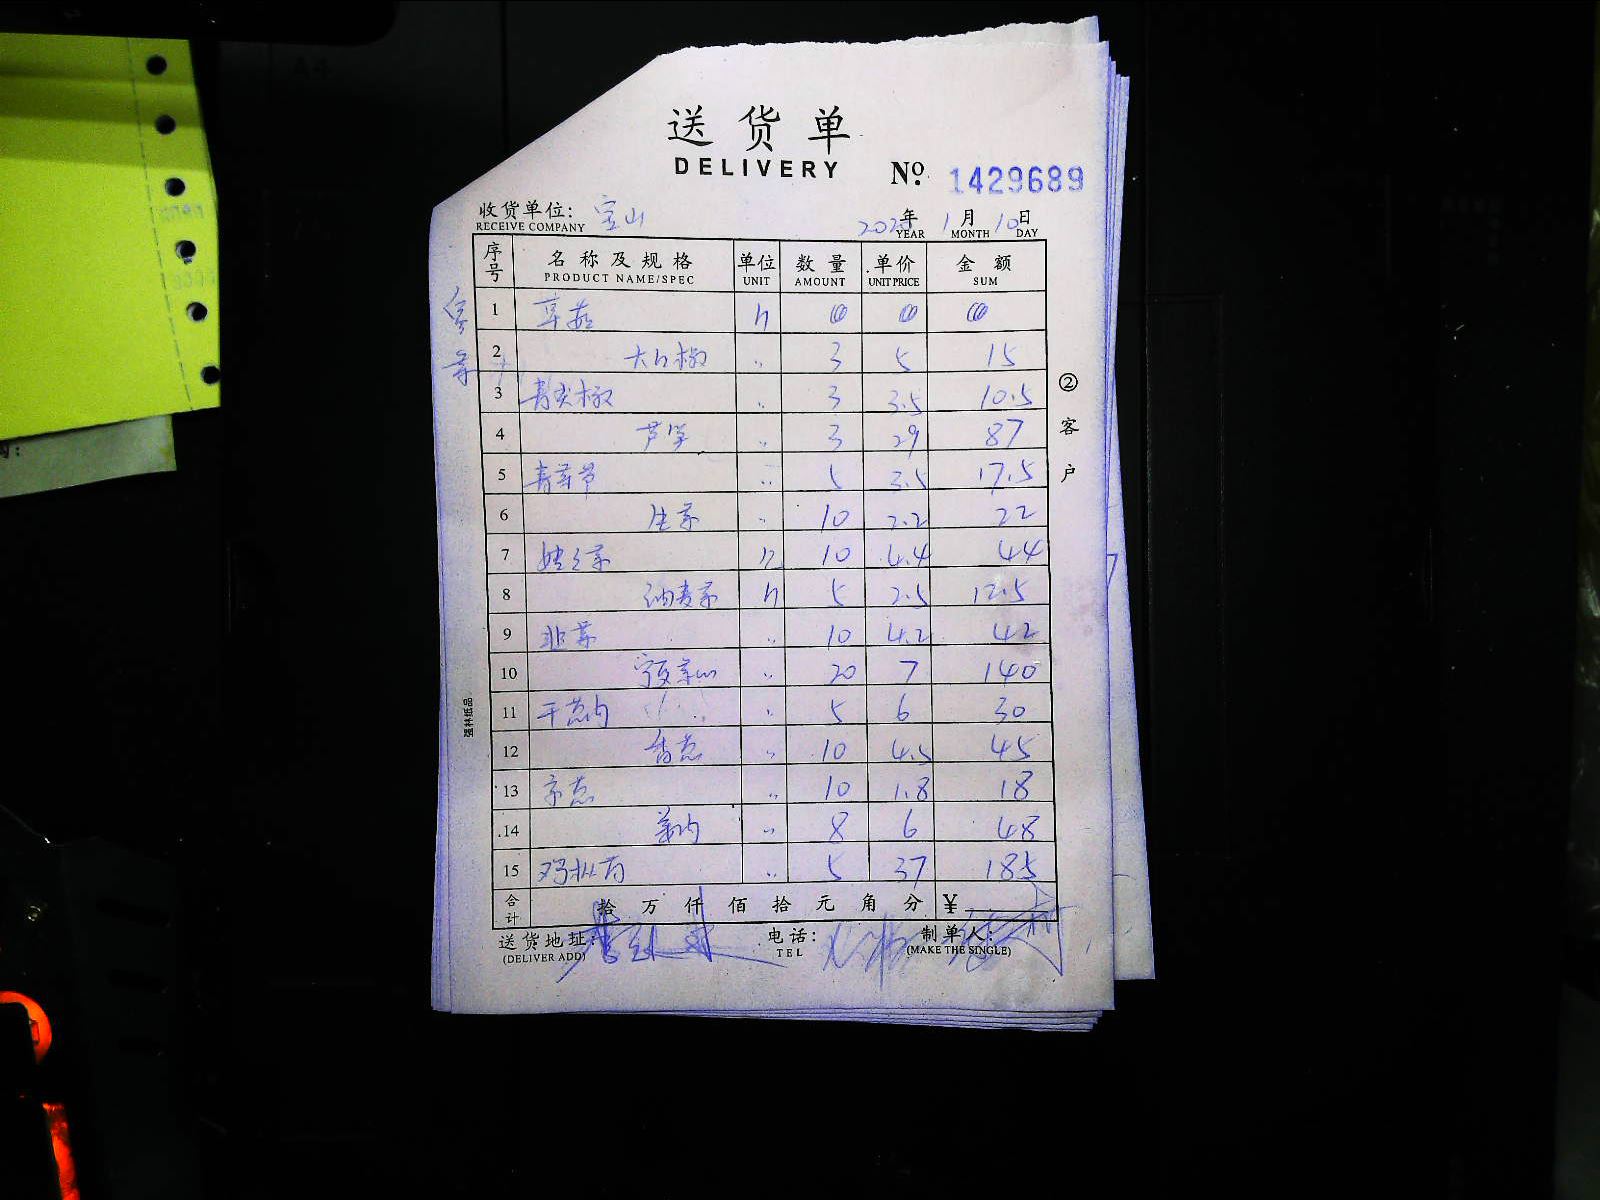 A4
送货单
DELIVERY
№ 1429689
收货单位: 宝山
RECEIVE COMPANY
年 1月10日
YEAR MONTH DAY
序号 名称及规格 单位 数量 单价 金额
PRODUCT NAME/SPEC UNIT AMOUNT UNIT PRICE SUM
1
2 3 5 15
3 青尖椒 〃 3 3.5 10.5
4 芦笋 〃 3 29 87
5 〃 5 3.5 17.5
6 生菜 〃 10 2.2 22
7 娃娃菜 10 4.4 44
8 5 2.5 12.5
9 韭菜 〃 10 4.2 42
10 宁夏菜心 〃 20 7 140
11 干葱肉 〃 5 6 30
12 香葱 〃 10 4.5 45
13 京葱 〃 10 1.8 18
14 姜肉 〃 8 6 48
15 鸡枞菌 〃 5 37 185
合计 拾 万 仟 佰 拾 元 角 分 ¥
送货地址: 电话: 制单人:
(DELIVER ADD) TEL (MAKE THE SINGLE)
②客户
强林纸品